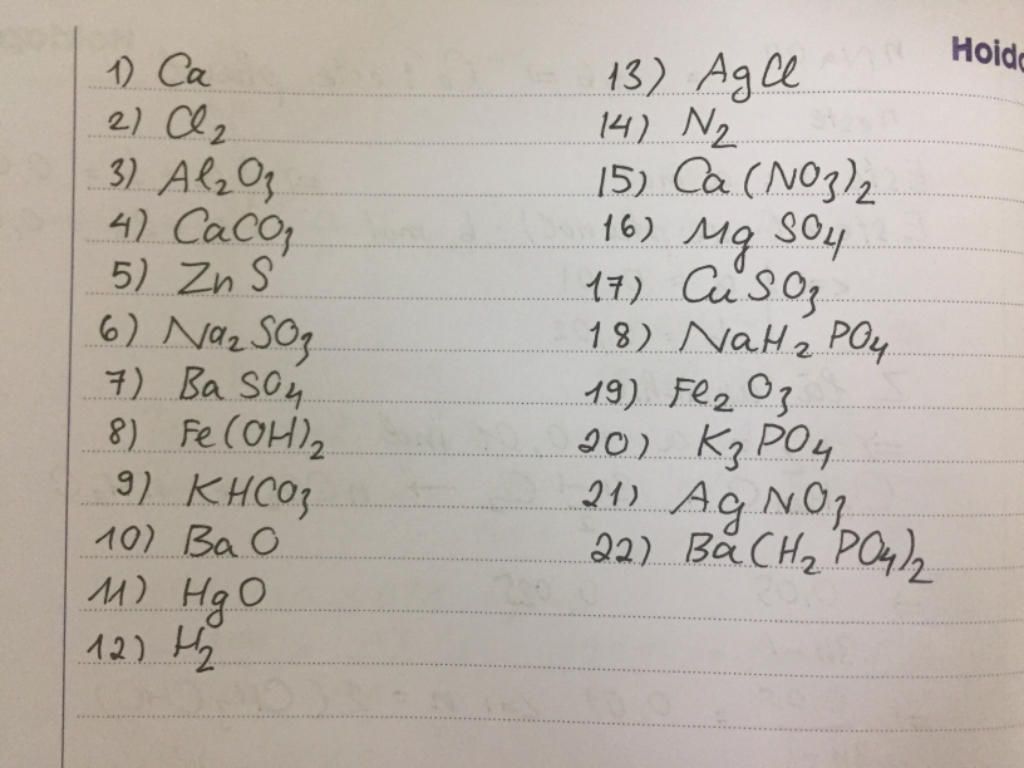 Hoid
1) Ca
2) Cl2
3) Al2O3
4) CaCO3
5) ZnS
6) Na2SO3
7) BaSO4
8) Fe(OH)2
9) KHCO3
10) BaO
11) HgO
12) H2
13) AgCl
14) N2
15) Ca(NO3)2
16) MgSO4
17) CuSO3
18) NaH2PO4
19) Fe2O3
20) K3PO4
21) AgNO3
22) Ba(H2PO4)2